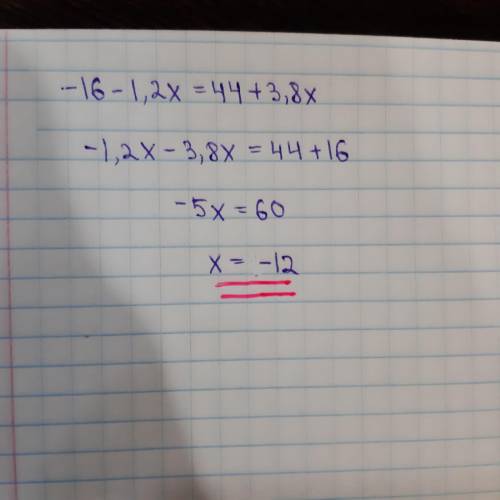 -16-1,2x=44+3,8x
-1,2x-3,8x=44+16
-5x=60
x= -12